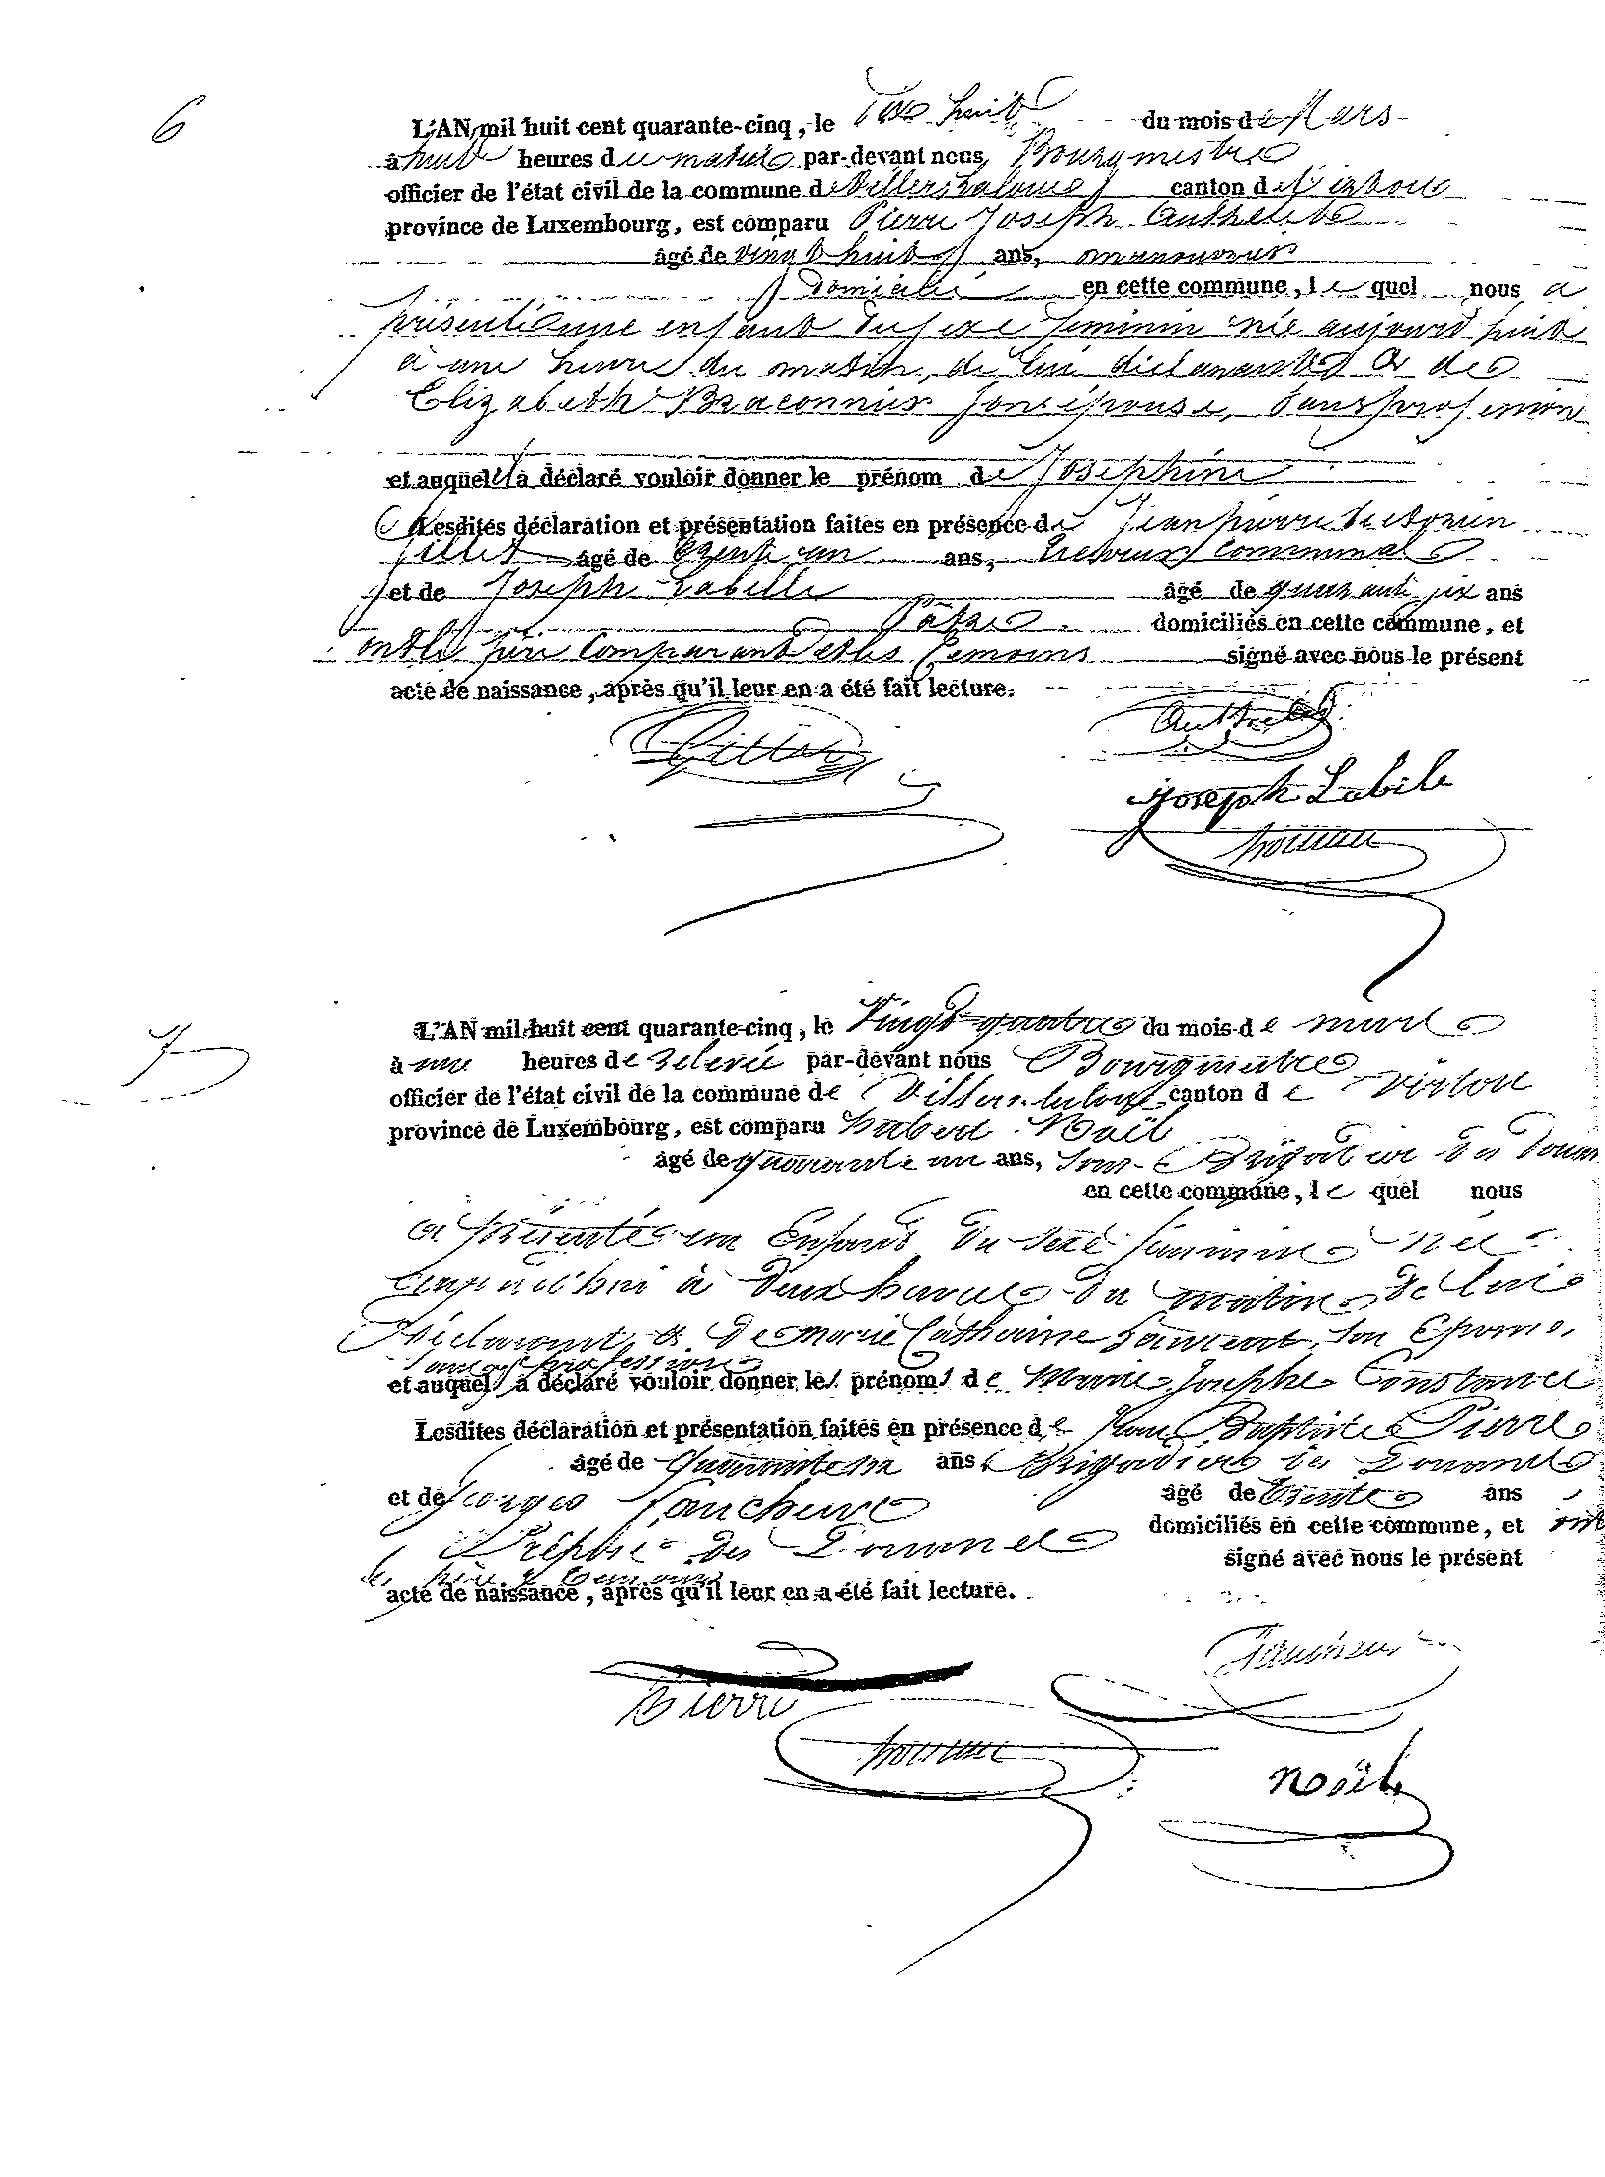 6
L'AN mil huit cent quarante-cinq, le dix huit du mois de Mars
à huit heures du matin par-devant nous Bourgmestre
officier de l'état civil de la commune de Villers canton de Virton
province de Luxembourg, est comparu Pierre Joseph
âgé de vingt huit ans, manoeuvre
domicilié en cette commune, le quel nous a
présenté une enfant du sexe feminin née aujourd huit
à une heure du matin, de lui déclarant & de
Elizabeth Braconnier son épouse, sans profession
et auquel il a déclaré vouloir donner le prénom de Josephine
Lesdites déclaration et présentation faites en présence de Jean pierre
Gillet âgé de trente un ans, receveur communal
et de Joseph Labelle âgé de quarante six ans
domiciliés en cette commune, et
ont le père comparant et les témoins signé avec nous le présent
acte de naissance, après qu'il leur en a été fait lecture.
Gillet
Joseph Labile
7
L'AN mil huit cent quarante-cinq, le Vingt quatre du mois de mars
à une heures de relevée par-devant nous Bourgmestre
officier de l'état civil de la commune de canton de Virton
province de Luxembourg, est comparu hubert Noël
âgé de quarante un ans, Sous-Brigadier des Douan
en cette commune, le quel nous
a présenté un Enfant du sexe féminin née
aujourd'hui à deux heures du matin de lui
déclarant, & de marie Catherine son Epouse,
sans profession
et auquel a déclaré vouloir donner les prénoms de Marie Josephe Constance
Lesdites déclaration et présentation faites en présence de Jean Baptiste Pierre
âgé de ans, Brigadier des Douanes
et de Georges Faucheur âgé de trente ans
Préposé des Douanes domiciliés en cette commune, et ont
signé avec nous le présent
les père & témoins
acte de naissance, après qu'il leur en a été fait lecture.
Faucheur
Pierre
Noël